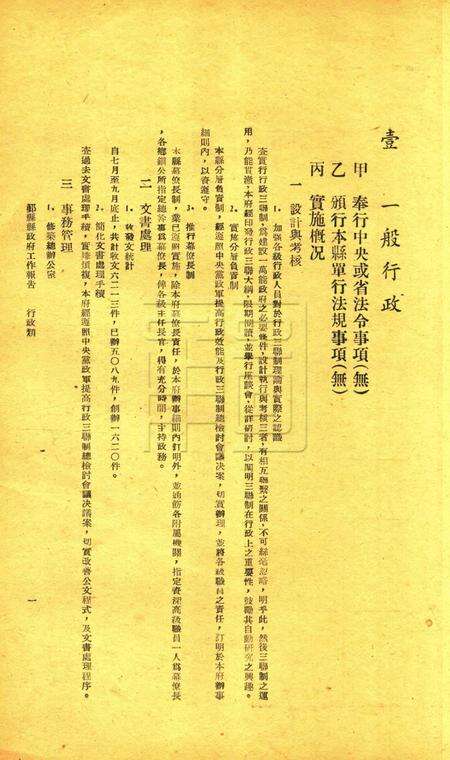 壹 一般行政
甲 奉行中央或省法令事項(無)
乙 頒行本縣單行法規事項(無)
丙 實施概況
一 設計與考核
1、加強各級行政人員對於行政三聯制理論與實際之認識
查實行行政三聯制,為建設一萬能政府之必要條件,設計執行與考核三者,有相互聯繫之關係,不可絲毫忽略,明乎此,然後三聯制之運
用,乃能貫澈,本府經印發行政三聯大綱,限期閱讀,並舉行座談會,從詳研討,以闡明三聯制在行政上之重要性,鼓勵其自動研究之興趣。
2、實施分層負責制
本縣分層負責制,經遵照中央黨政軍提高行政效能及行政三聯制總檢討會議決案,切實辦理,並將各級職員之責任,訂明於本府辦事
細則內,以資遵守。
3、推行幕僚長制
本縣幕僚長制,業已遵照實施,除本府幕僚長責任,於本府辦事細則內訂明外,並通飭各附屬機關,指定資深高級職員一人為幕僚長
,各鄉鎮公所指定總幹事為幕僚長,俾各級主任長官,得有充分時間,主持政務。
二 文書處理
1、收發文統計
自七月至九月底止,共計收文六二一三件,已辦五〇八九件,創辦一六二〇件。
2、簡化文書處理手續
查過去文書處理手續,實嫌煩複,本府經遵照中央黨政軍提高行政三聯制總檢討會議決議案,切實改善公文程式,及文書處理程序。
三 事務管理
1、修築總辦公室
縣縣政府工作報告 行政類 一